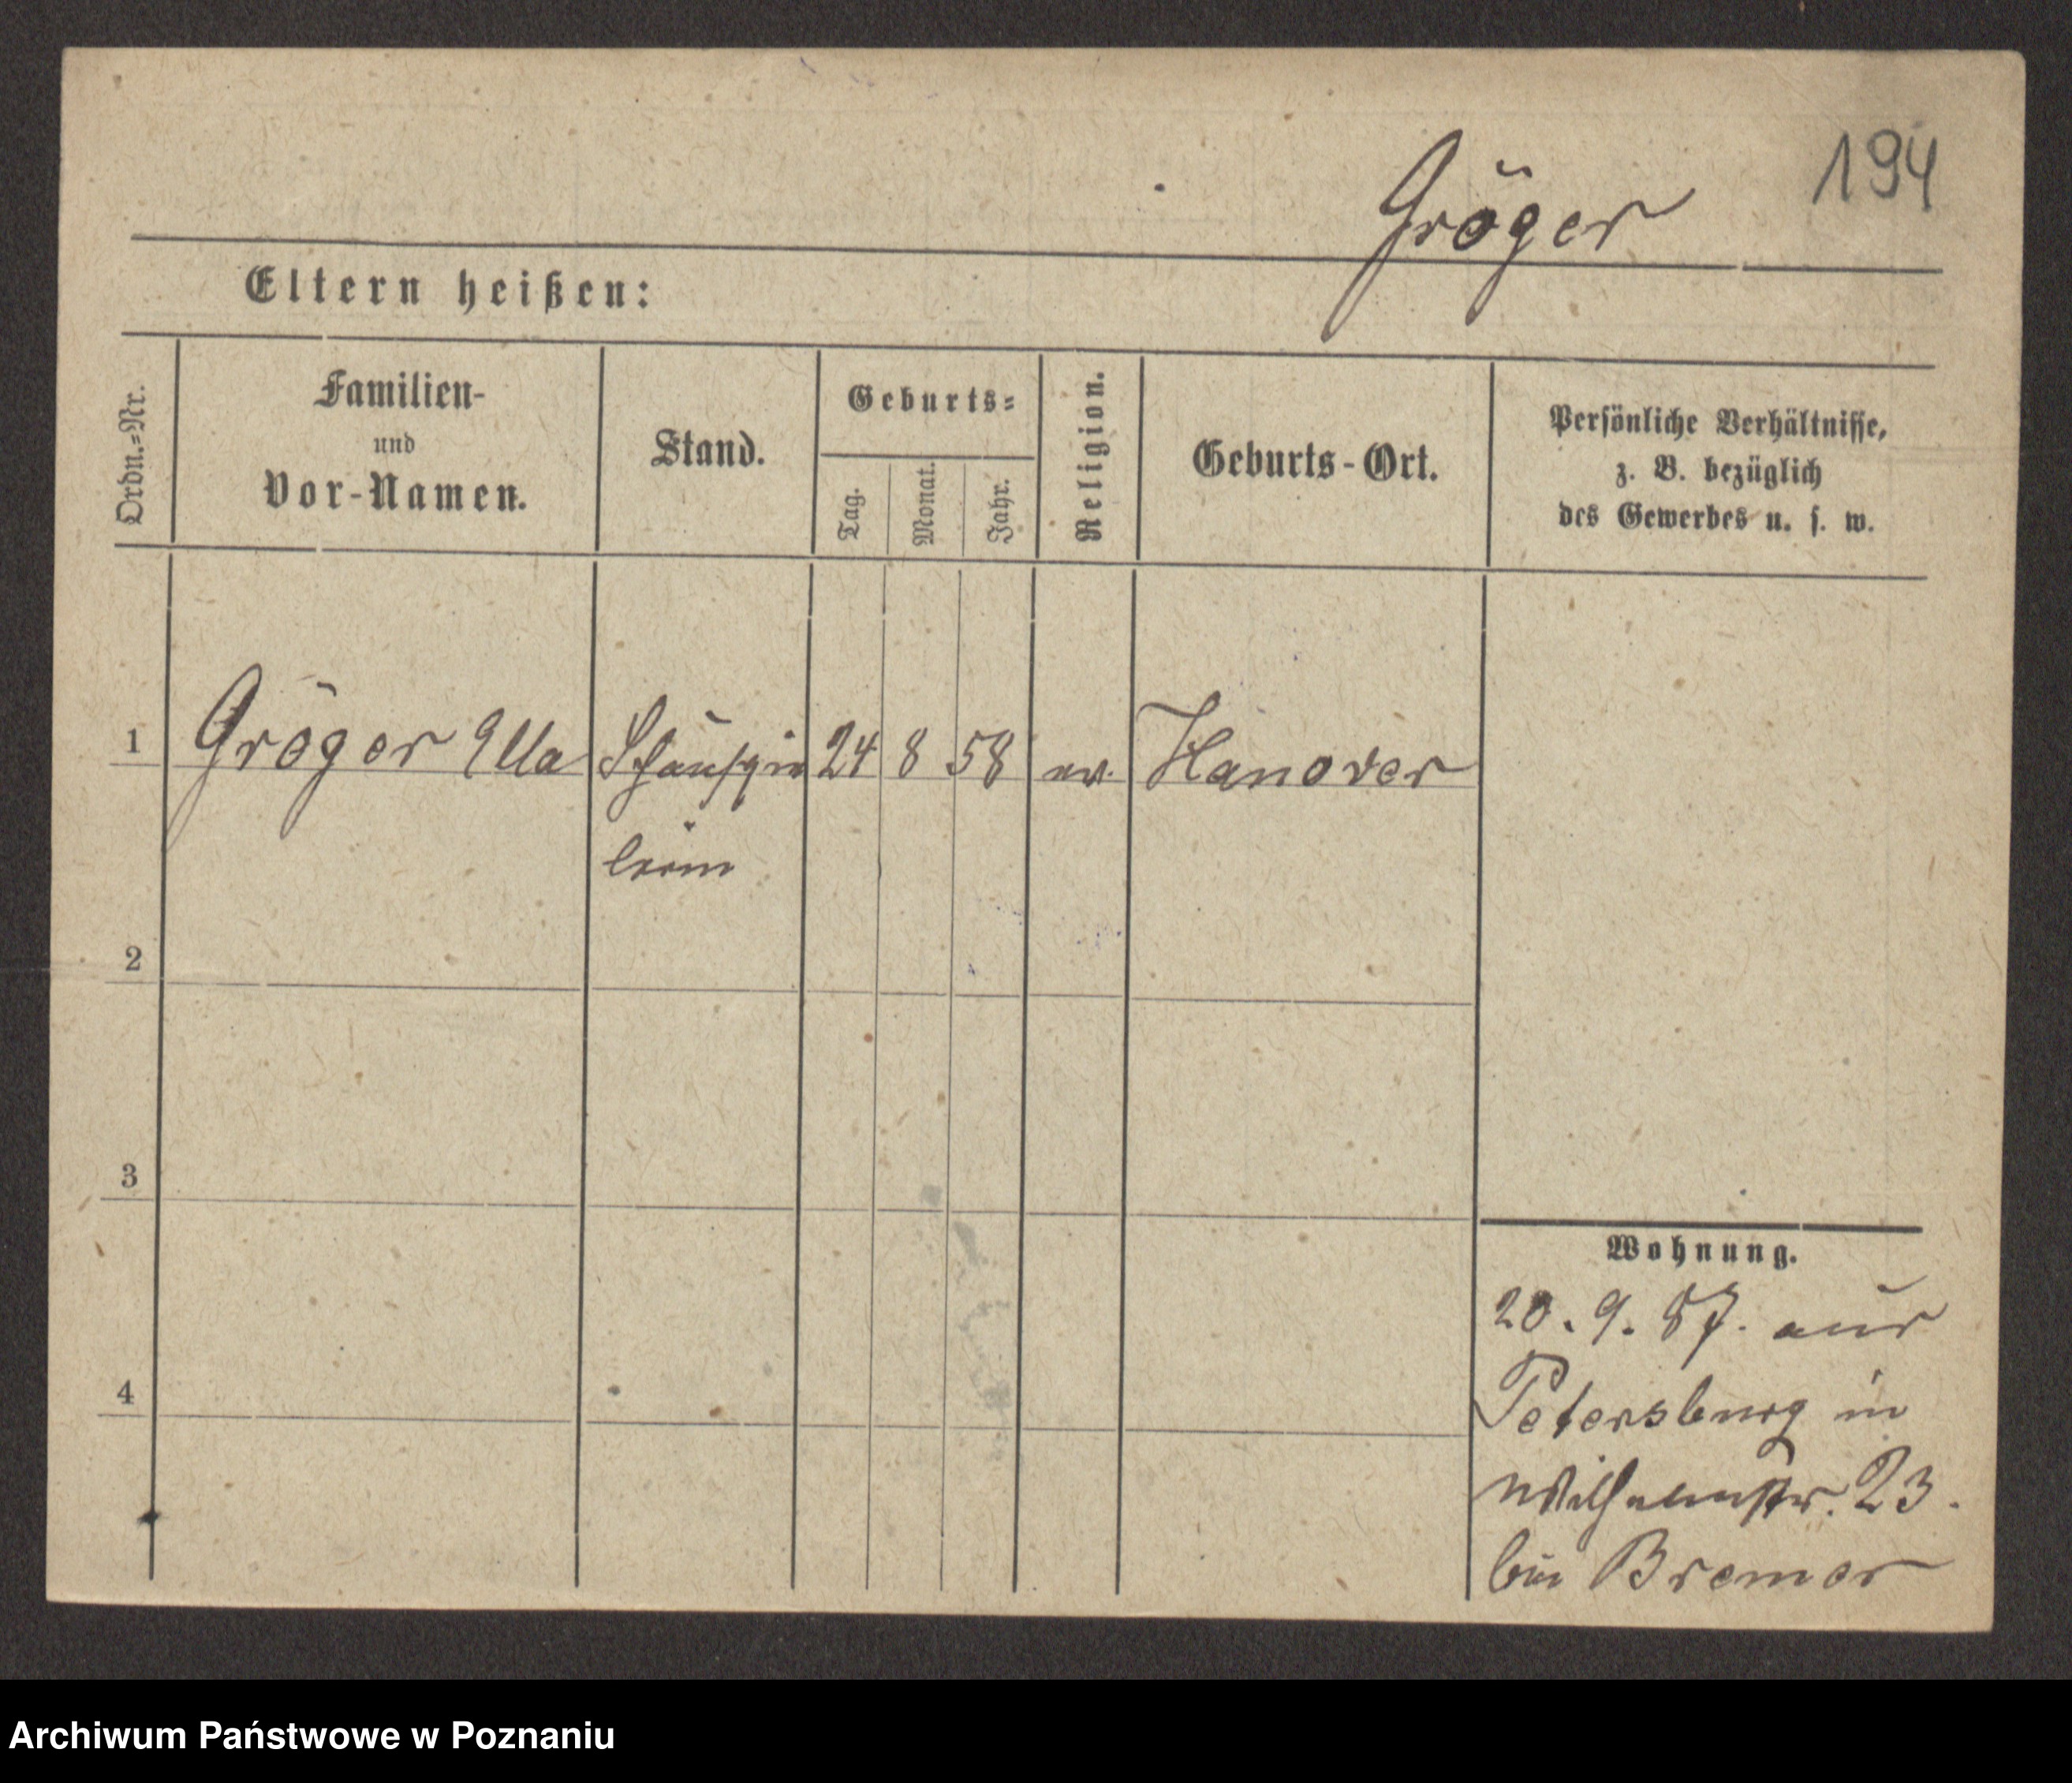 194
Gröger
Eltern heißen:
Ordn.=Nr.
Familien-
und
Vor-Namen.
Stand.
Geburts=
Tag.
Monat.
Jahr.
Religion.
Geburts-Ort.
Persönliche Verhältnisse,
z. B. bezüglich
des Gewerbes u. s. w.
1 Gröger Ella Schauspie 24 8 58 ev. Hanover
lerin
2
3
4
Wohnung.
20. 9. 87. aus
Petersburg in
Wilhelmstr. 23.
bei Bremer
Archiwum Państwowe w Poznaniu